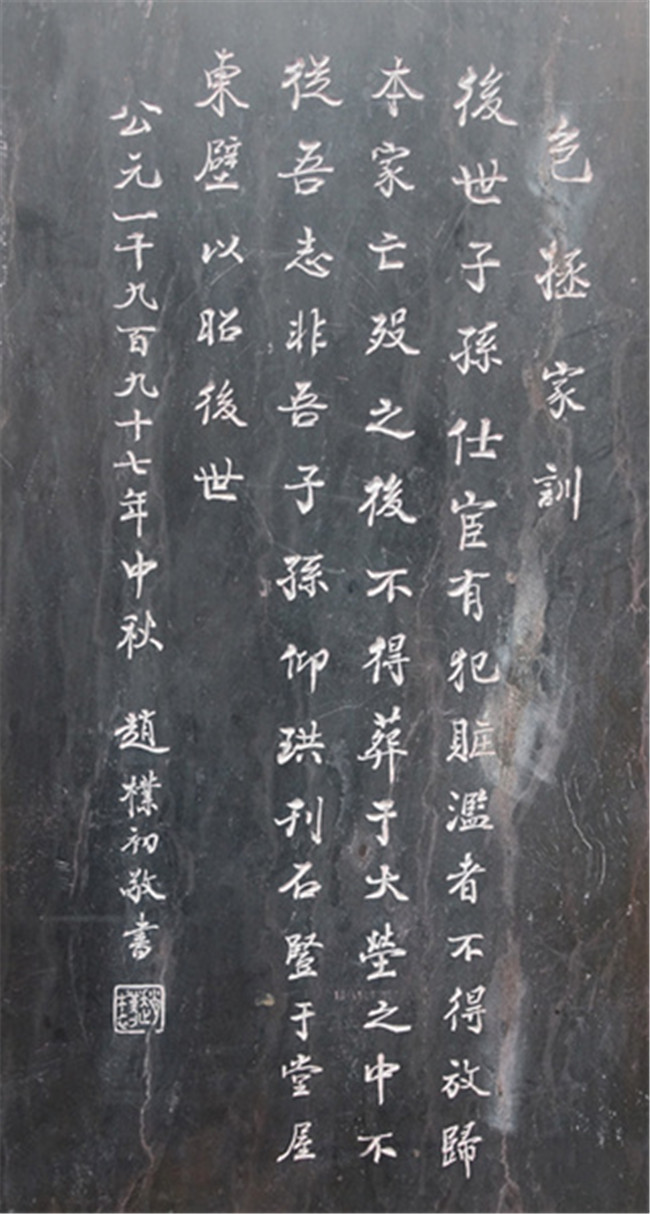 包拯家訓
後世子孫仕宦有犯賍濫者不得放歸
本家亡歿之後不得葬于大塋之中不
從吾志非吾子孫仰珙刊石豎于堂屋
東壁以昭後世
公元一千九百九十七年中秋 趙樸初敬書